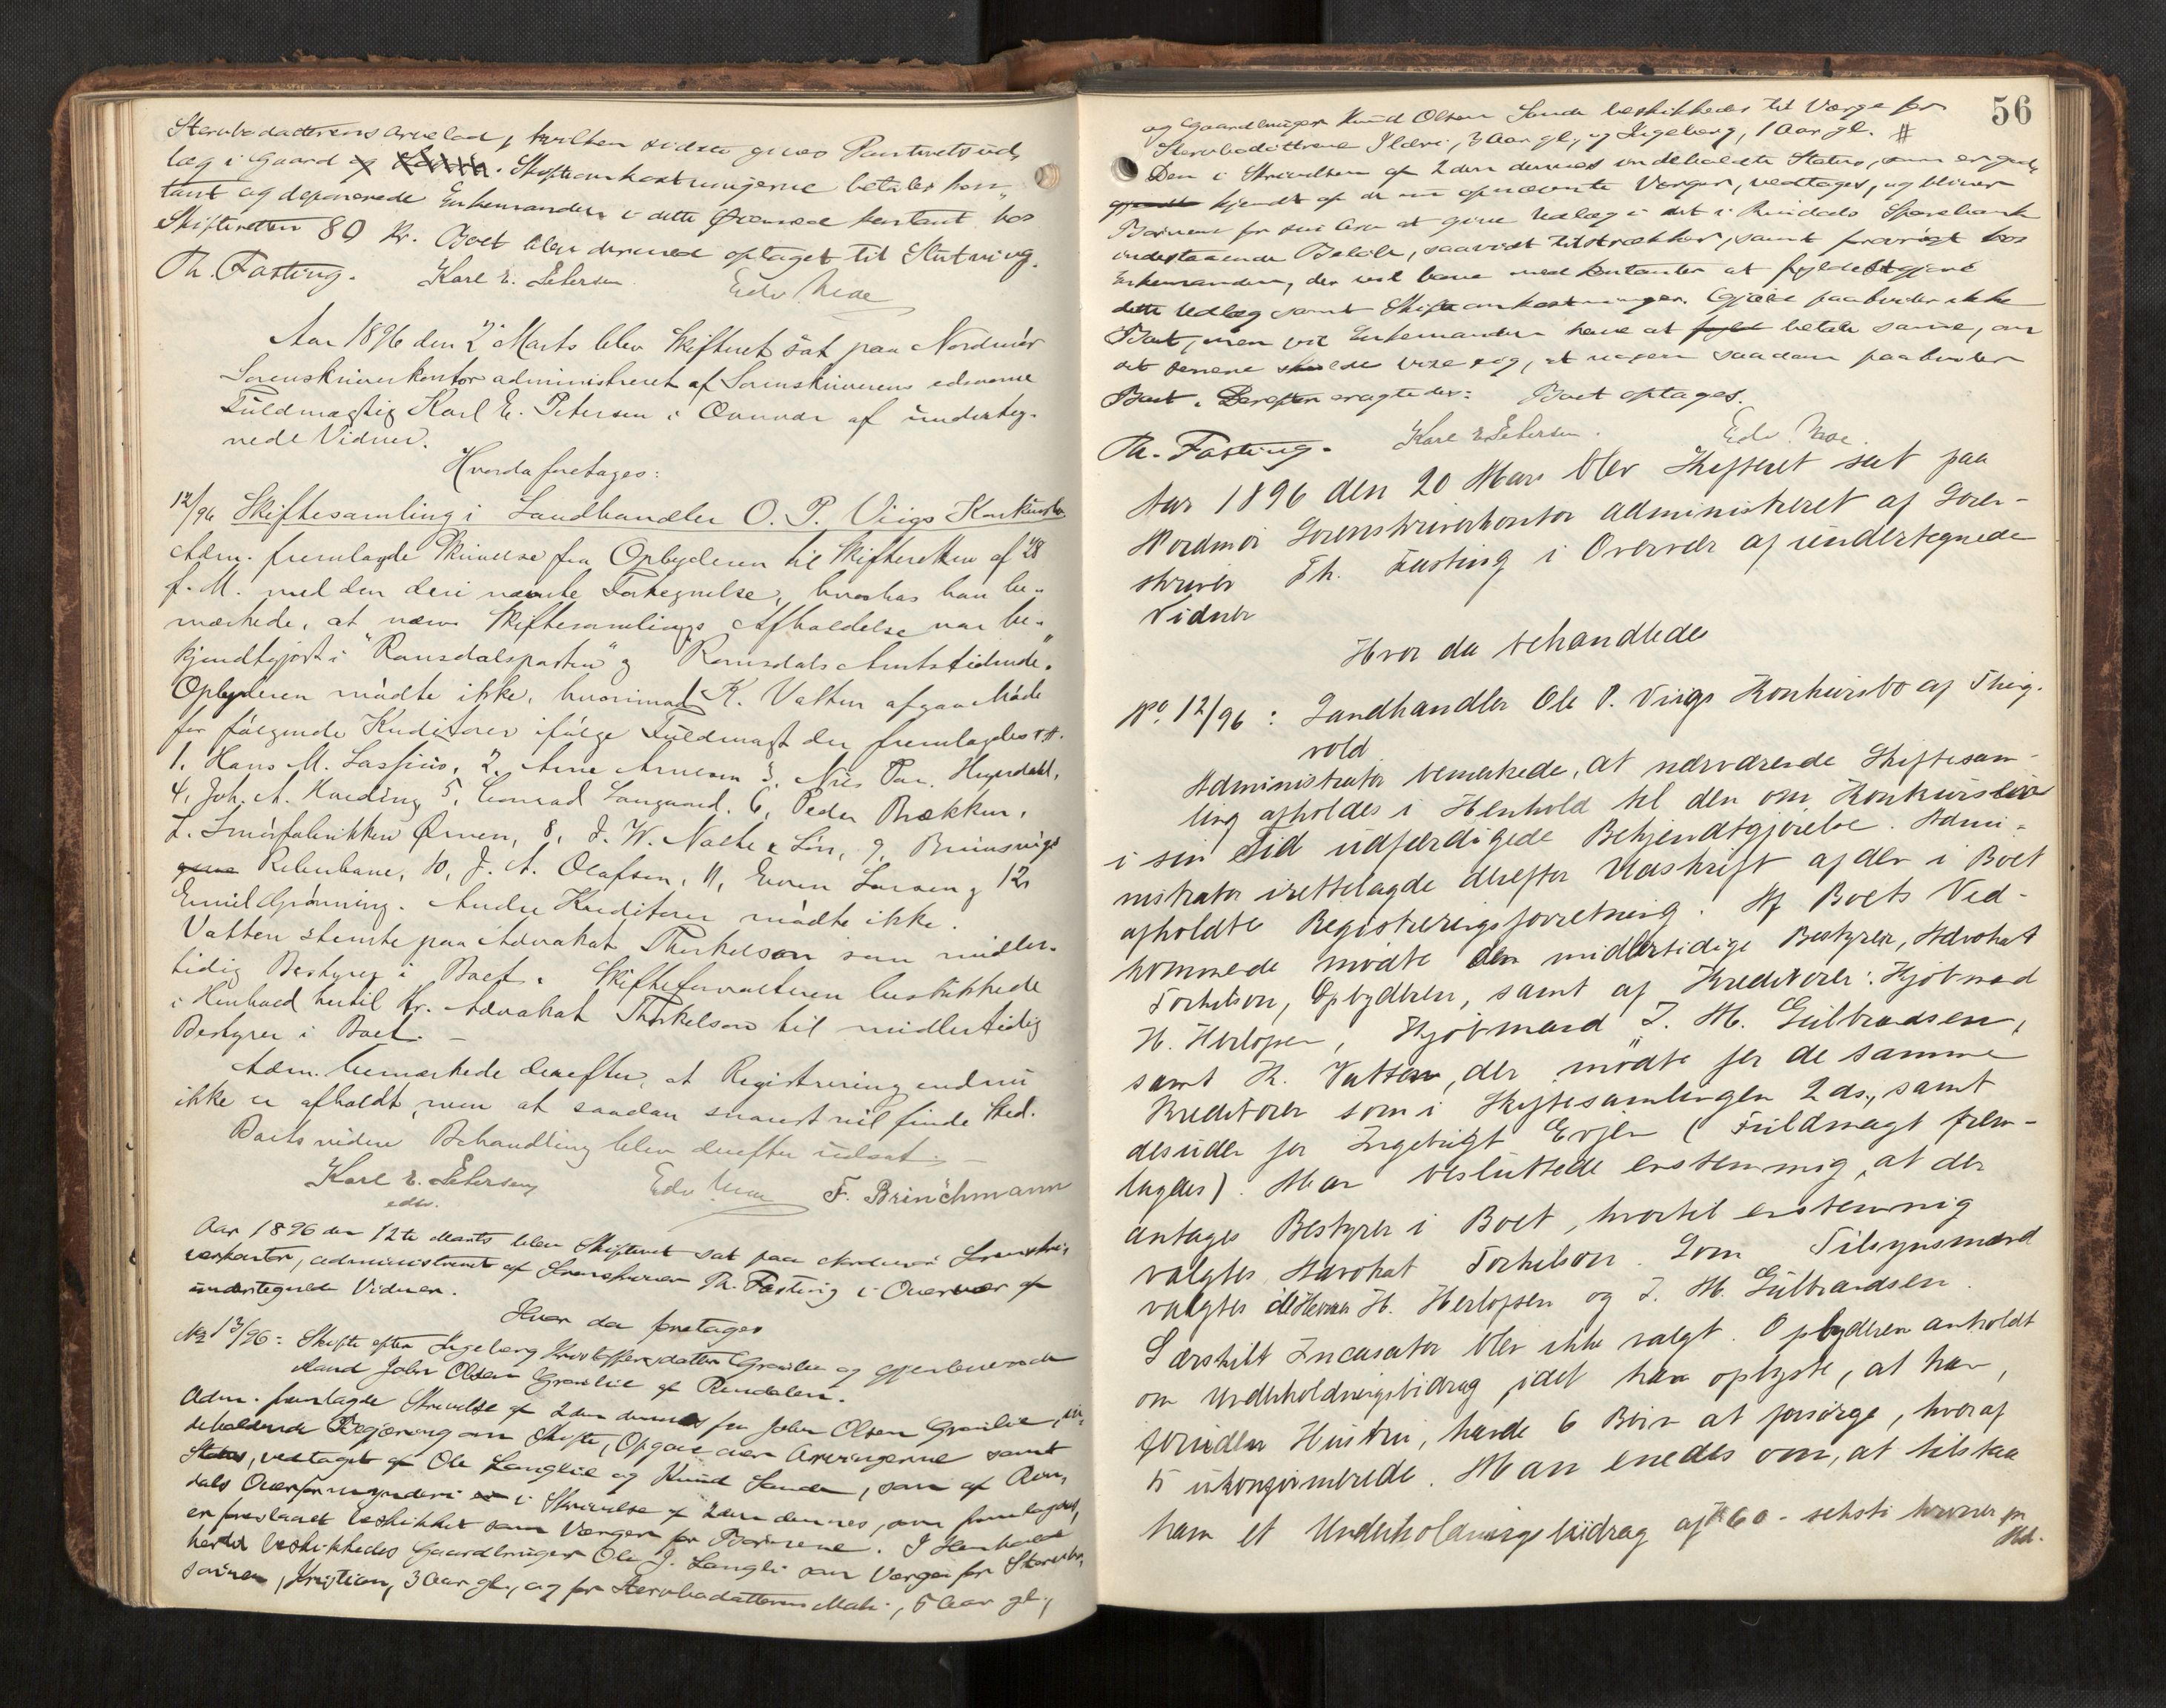 Stervbodatterens Arvelod, hvilken sidste gives Panteretsud-
læg i Gaard og. Skifteomkostningerne betales kon-
tant og deponerede Enkemanden i dette Øiemed kontant hos
Skifteretten 80 Kr. Boet blev dermed optaget til Slutning.
Th. Fasting. Karl E. Petersen Edv Moe
Aar 1896 den 2 Marts blev Skifteret sat paa Nordmør
Sorenskriverkontor administreret af Sorenskriverens edsvorne
Fuldmægtig Karl E. Petersen i Overvær af underteg-
nede Vidner.
Hvorda foretages:
12/96 Skiftesamling i Landhandler O. P. Viigs Konkursbo
Adm. fremlagde Skrivelse fra Opbyderen til Skifteretten af 28
f. M. med den deri nævnte Fortegnelse, hvorhos han be-
mærkede, at nærv. Skiftesamlings Afholdelse var be-
kjendtgjort i "Romsdalsposten" og "Romsdals Amtstidende".
Opbyderen mødte ikke, hvorimod K. Vatten afgav Møde
for følgende Kreditorer ifølge Fuldmagt der fremlagdes
1. Hans M. 2. Arne Arnesen 3. Nils
4, Joh. A. 5, Conrad Langaard. 6, Peder Brækken,
7. Smørfabrikken Ørnen, 8, J. W. & Søn, 9,
Reberbane, 10, J. A. Olafsen, 11, Larsen og 12,
Emil Grønning. Andre Kreditorer mødte ikke.
Vatten stemte paa Advokat Thorkelson som midler-
tidig Bestyrer i Boet. Skifteforvalteren beskikkede
i Henhold hertil Hr. Advokat Thorkelson til midlertidig
Bestyrer i Boet. —
Adm. bemærkede derefter, at Registrering endnu
ikke er afholdt, men at saadan snarest vil finde Sted.
Boets videre Behandling blev derefter udsat. —
Karl E. Petersen Edv Moe F. Brinchmann
edsv.
Aar 1896 den 12te Marts blev Skifteret sat paa Nordmør Sorenskri-
verkontor, administreret af Sorenskriver Th. Fasting i Overvær af
undertegnede Vidner.
Hvor da foretages
No 13/96: Skifte efter Ingeborg Kristoffersdatter Granlie og gjenlevende
Mand John Olsen Granlie af Rindalen.
Adm. fremlagde Skrivelse af 2den dennes fra John Olsen Granlie, in-
deholdende Begjæring om Skifte, Opgave over Arvingerne samt
Status, vedtaget af Ole Langlie og Knud Sande, som af
dals Overformynderi i Skrivelse af 2den dennes, som fremlagdes,
er foreslaaet beskikket som Værger for Børnene. I Henhold
hertil beskikkedes Gaardbruger Ole J. Langli som Værge for Stervbo-
sønnen, Kristian, 3 Aar gl., og for Stervbodatteren Mali, 5 Aar gl.,
56
og Gaardbruger Knud Olsen Sande beskikkedes til Værge for
Stervbodøttrene 3 Aar gl., og Ingeborg, 1 Aar gl. #
Den i Skrivelsen af 2den dennes indeholdte Status, som er god-
kjendt af de nu opnævnte Værger, vedtages, og bliver
Børnene for sin Arv at give Udlæg i det i Rindals Sparebank
indestaaende Beløb, saavidt tilstrækker, samt forøvrigt hos
Enkemanden, der vil have med Kontanter at fyldestgjøre
dette Udlæg samt Skifteomkostninger. Gjæld paahviler ikke
Boet, men vil Enkemanden have at betale samme, om
det senere skulde vise sig, at nogen saadan paahviler
Boet. Derefter eragtedes: Boet optages.
Th. Fasting. Karl E Petersen. Edv. Moe.
Aar 1896 den 20 Mars blev Skifteret sat paa
Nordmør Sorenskriverkontor administreret af Soren-
skriver Th. Fasting i Overvær af undertegnede
Vidner
Hvor da behandledes
No. 12/96: Landhandler Ole P. Viigs Konkursbo af Thing-
vold
Administrator bemerkede, at nærværende Skiftesam-
ling afholdes i Henhold til den om Konkursen
i sin Tid udfærdigede Bekjendtgjørelse. Admi-
nistrator irettelagde derefter Udskrift af den i Boet
afholdte Registreringsforretning. Af Boets Ved-
kommende mødte den midlertidige Bestyrer, Advokat
Torkelson, Opbyderen, samt af Kreditorer: Kjøbmand
H. Herlofsen, Kjøbmand J. M. Gulbrandsen,
samt K. Vatten, der mødte for de samme
Kreditorer som i Skiftesamlingen 2 ds., samt
desuden for Ingebrigt Evjen (Fuldmagt frem-
lagdes). Man besluttede enstemmig, at der
antages Bestyrer i Boet, hvortil enstemmig
valgtes Advokat Torkelson. Som Tilsynsmænd
valgtes d'Herrer H. Herlofsen og J. M. Gulbrandsen.
Særskilt Incasator blev ikke valgt. Opbyderen anholdt
om Underholdningsbidrag, idet han oplyste, at han,
foruden Hustru, havde 6 Børn at forsørge, hvoraf
5 ukonfirmerede. Man enedes om, at tilstaa
ham et Underholdningsbidrag af Kr 60 - seksti kroner pr
Md.